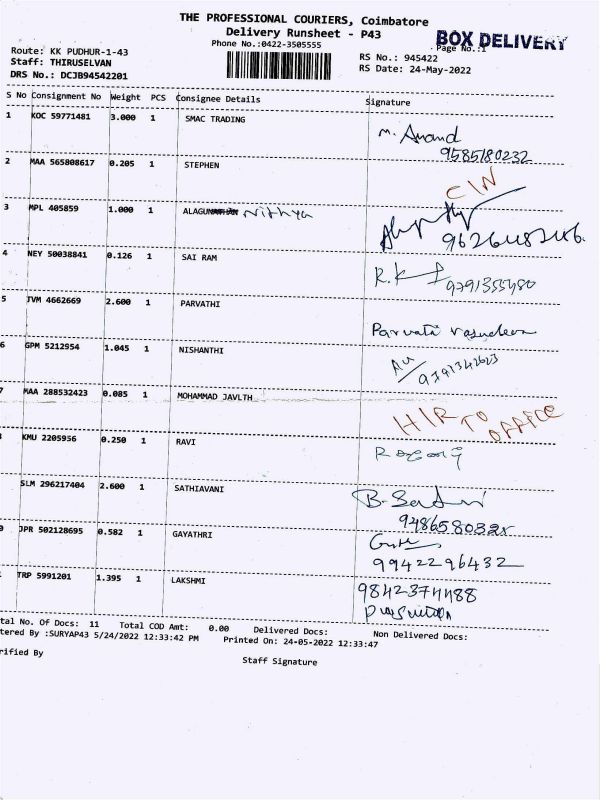 THE PROFESSIONAL COURIERS, Coimbatore
Delivery Runsheet - P43
BOX DELIVERY
Phone No.:0422-3505555
Page No.:1
Route: KK PUDHUR-1-43
RS No.: 945422
Staff: THIRUSELVAN
RS Date: 24-May-2022
DRS No.: DCJB94542201
S No Consignment No Weight PCS Consignee Details Signature
1 KOC 59771481 3.000 1 SMAC TRADING
M. Anand
9585180232
2 MAA 565808617 0.205 1 STEPHEN
C/N
3 MPL 405859 1.000 1 Nithya
4 NEY 50038841 0.126 1 SAI RAM
R.K
9791355480
5 JVM 4662669 2.600 1 PARVATHI
Parvati Vasudevan
6 GPM 5212954 1.045 1 NISHANTHI
9791342623
7 MAA 288532423 0.085 1 MOHAMMAD JAVLTH
H/R TO OFFICE
KMU 2205956 0.250 1 RAVI
SLM 296217404 2.600 1 SATHIAVANI
JPR 502128695 0.582 1 GAYATHRI
9942296432
TRP 5991201 1.395 1 LAKSHMI
9842374488
tal No. Of Docs: 11 Total COD Amt: 0.00 Delivered Docs: Non Delivered Docs:
tered By :SURYAP43 5/24/2022 12:33:42 PM Printed On: 24-05-2022 12:33:47
rified By
Staff Signature